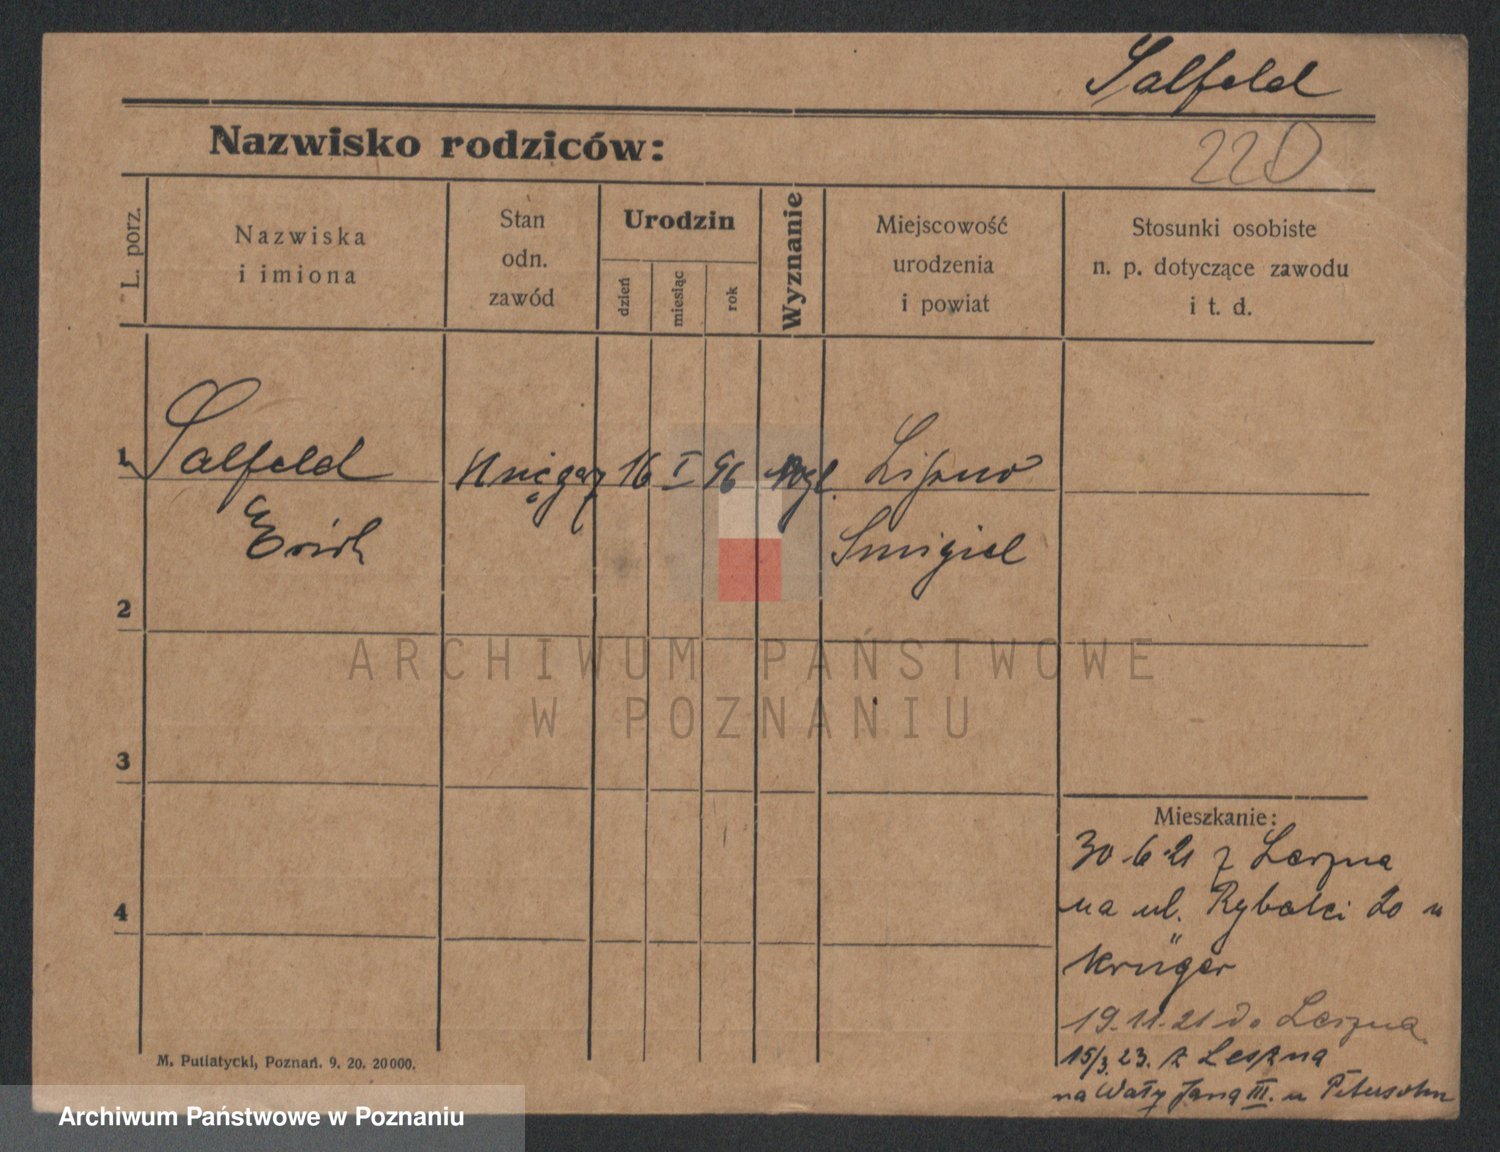 Salfeld
Nazwisko rodziców:
220
L. porz.
Nazwiska
i imiona
Stan
odn.
zawód
Urodzin
dzień
miesiąc
rok
Wyznanie
Miejscowość
urodzenia
i powiat
Stosunki osobiste
n. p. dotyczące zawodu
i t. d.
1 Salfeld Księgarz 16 I 96 Lipno
Erich Smigiel
2
ARCHIWUM PAŃSTWOWE
W POZNANIU
3
Mieszkanie:
30.6.21 z Leszna
4
na ul. 20 u
Krüger
19.11.21 do Leszna
15/3.23. z Leszna
na Wały Jana III. u Petersohn
M. Putiatycki, Poznań. 9. 20. 20000.
Archiwum Państwowe w Poznaniu